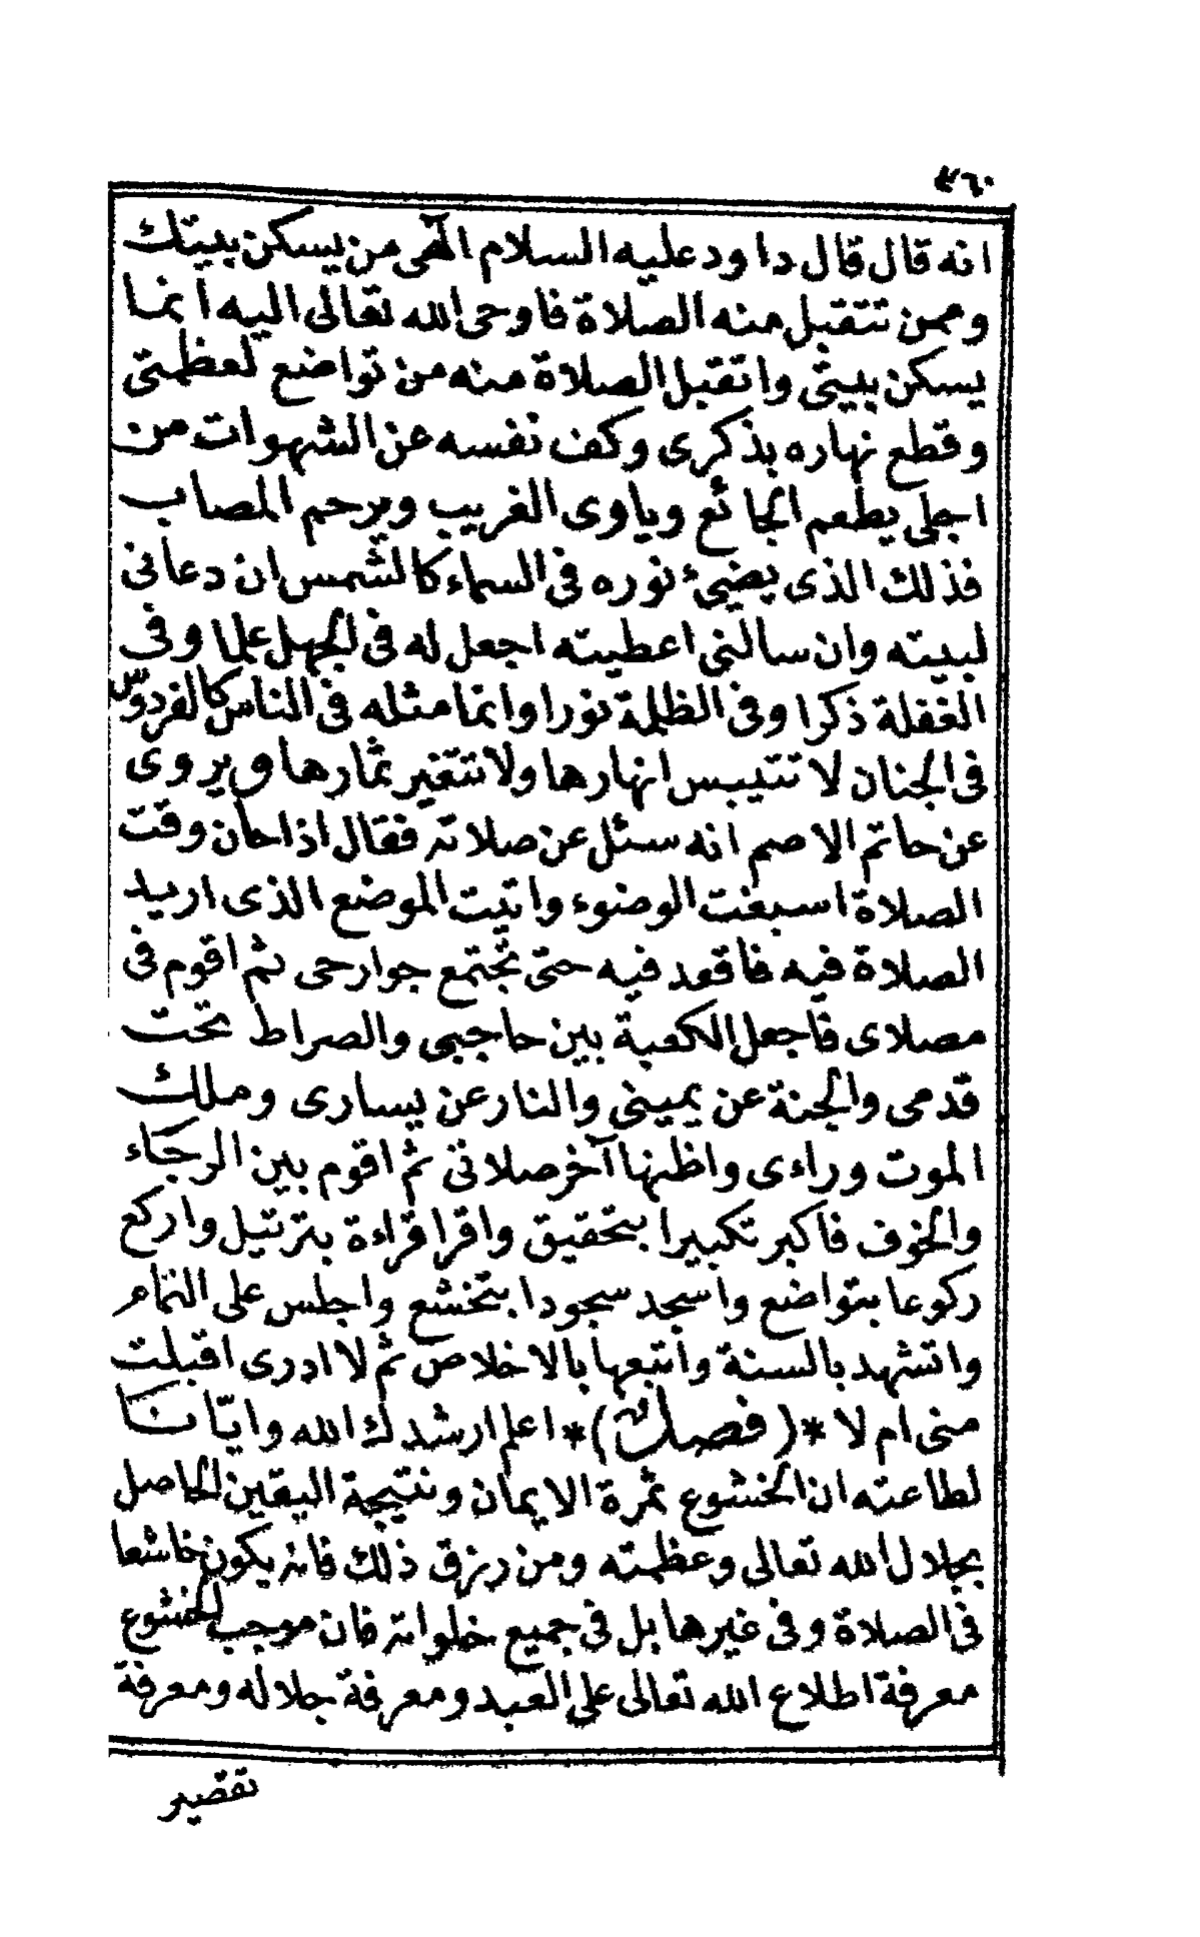 ٤٦٠
انه قال قال داود عليه السلام الٓهى من يسكن بيتك
وممن تتقبل منه الصلاة فاوحى الله تعالى اليه انما
يسكن بيتى واتقبل الصلاة منه من تواضع لعظمتى
وقطع نهاره بذكرى وكف نفسه عن الشهوات من
اجلى يطعم الجائع وياوى الغريب ويرحم المصاب
فذلك الذى يضيئ نوره فى السماء كالشمس ان دعانى
لبيته وان سالنى اعطيته اجعل له فى الجهل علما وفى
الغفلة ذكرا وفى الظلمة نورا وانما مثله فى الناس كالفردوس
فى الجنان لا تتيبس انهارها ولا تتغير ثمارها ويروى
عن حاتم الاصم انه سئل عن صلاته فقال اذا حان وقت
الصلاة اسبغت الوضوء واتيت الموضع الذى اريد
الصلاة فيه فاقعد فيه حتى تجتمع جوارحى ثم اقوم فى
مصلاى فاجعل الكعبة بين حاجبى والصراط تحت
قدمى والجنة عن يمينى والنار عن يسارى وملك
الموت وراءى واظنها آخر صلاتى ثم اقوم بين الرجاء
والخوف فاكبر تكبيرا بتحقيق واقرا قراءة بترتيل واركع
ركوعا بتواضع واسجد سجودا بتخشع واجلس على التمام
واتشهد بالسنة واتبعها بالاخلاص ثم لا ادرى اقبلت
منى ام لا *(فصل)* اعلم ارشدك الله وايّانا
لطاعته ان الخشوع ثمرة الايمان ونتيجة اليقين الحاصل
بجلال الله تعالى وعظمته ومن رزق ذلك فانه يكون خاشعا
فى الصلاة وفى غيرها بل فى جميع خلواته فان موجب الخشوع
معرفة اطلاع الله تعالى على العبد ومعرفة جلاله ومعرفة
تقصير